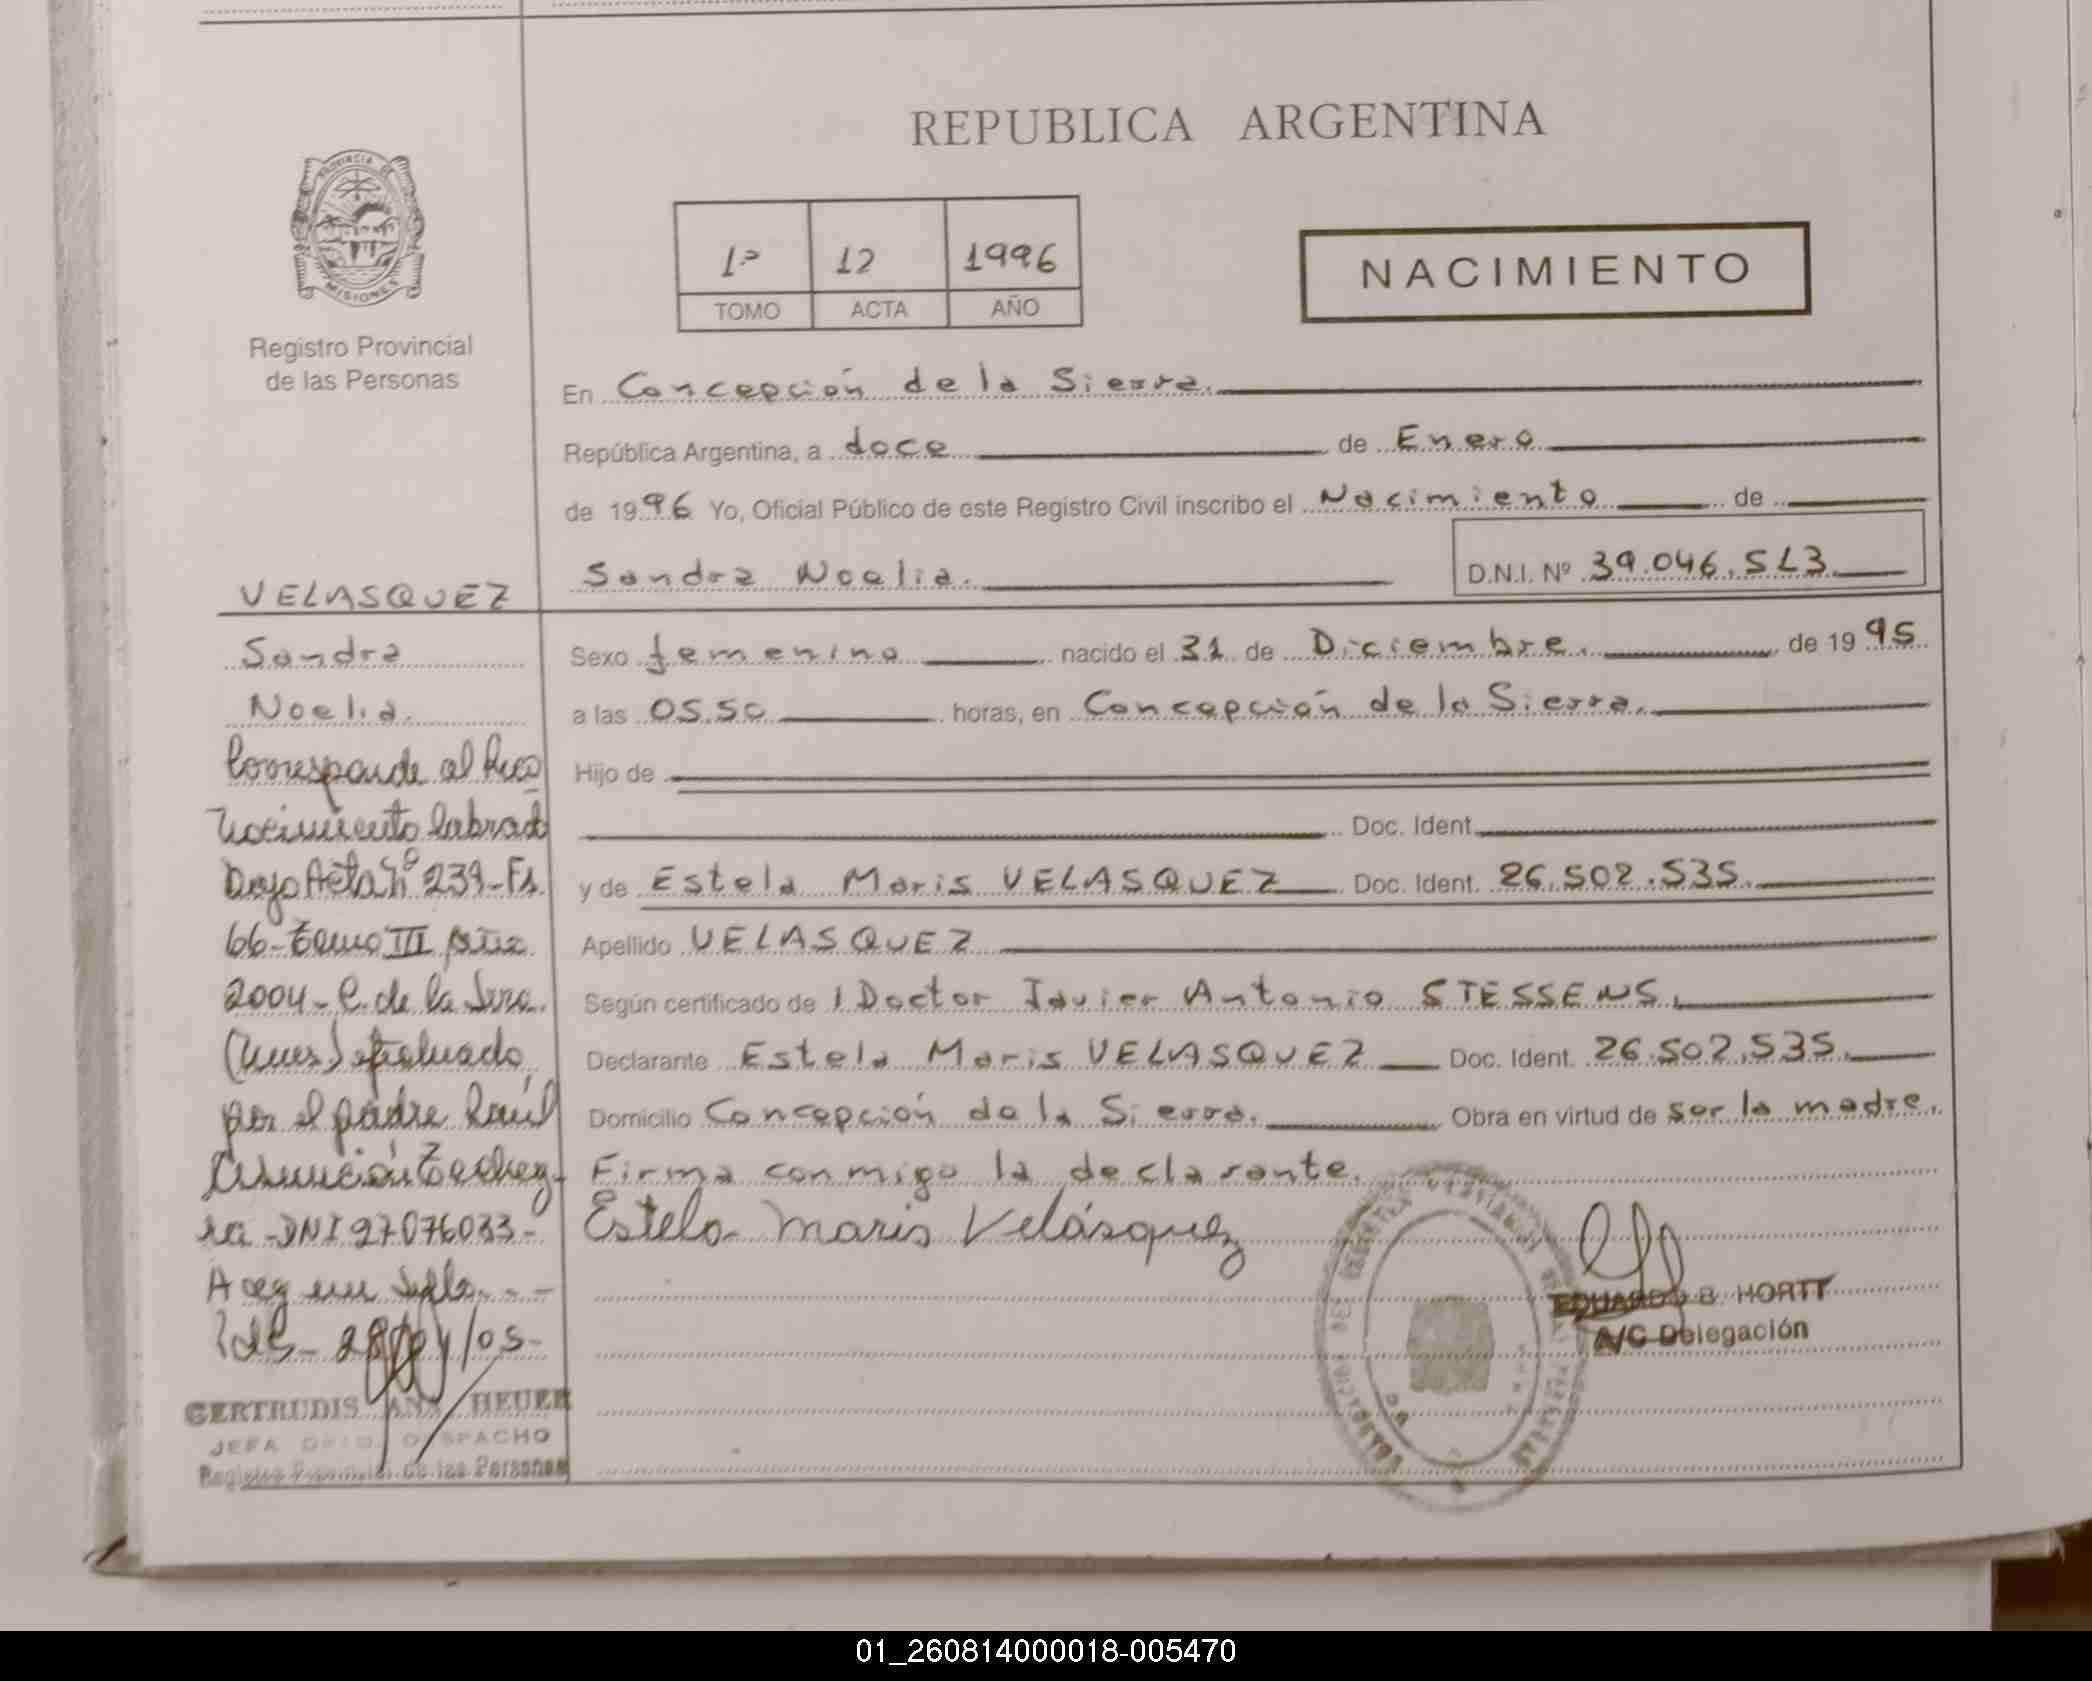 REPUBLICA ARGENTINA
PROVINCIA DE
MISIONES
Registro Provincial
de las Personas
1º 12 1996
TOMO ACTA AÑO
NACIMIENTO
En Concepción de la Sierra.
República Argentina, a doce de Enero
de 1996 Yo, Oficial Público de este Registro Civil inscribo el Nacimiento de
Sandra Noelia. D.N.I. Nº 39.046.513.
VELASQUEZ
Sandra
Noelia.
Sexo femenino nacido el 31 de Diciembre. de 1995
a las 05.50 horas, en Concepción de la Sierra.
Hijo de
Doc. Ident.
y de Estela Maris VELASQUEZ Doc. Ident. 26.502.535.
Apellido VELASQUEZ
Según certificado de l Doctor Javier Antonio STESSENS.
Declarante Estela Maris VELASQUEZ Doc. Ident. 26.502.535.
Domicilio Concepción de la Sierra. Obra en virtud de ser la madre.
Firma conmigo la declarante.
Estela Maris Velásquez
EDUARDO B. HORTT
A/C Delegación
Corresponde al Reco
nocimiento labrado
bajo Acta Nº 239-Fs.
66-Tomo III
2004- C. de la Sierra.
(Mnes) efectuado
por el padre Raúl
Asunción
DNI 27076033-
28/04/05-
GERTRUDIS ANA HEUER
JEFA DESPACHO
Registro Provincial de las Personas
01_260814000018-005470